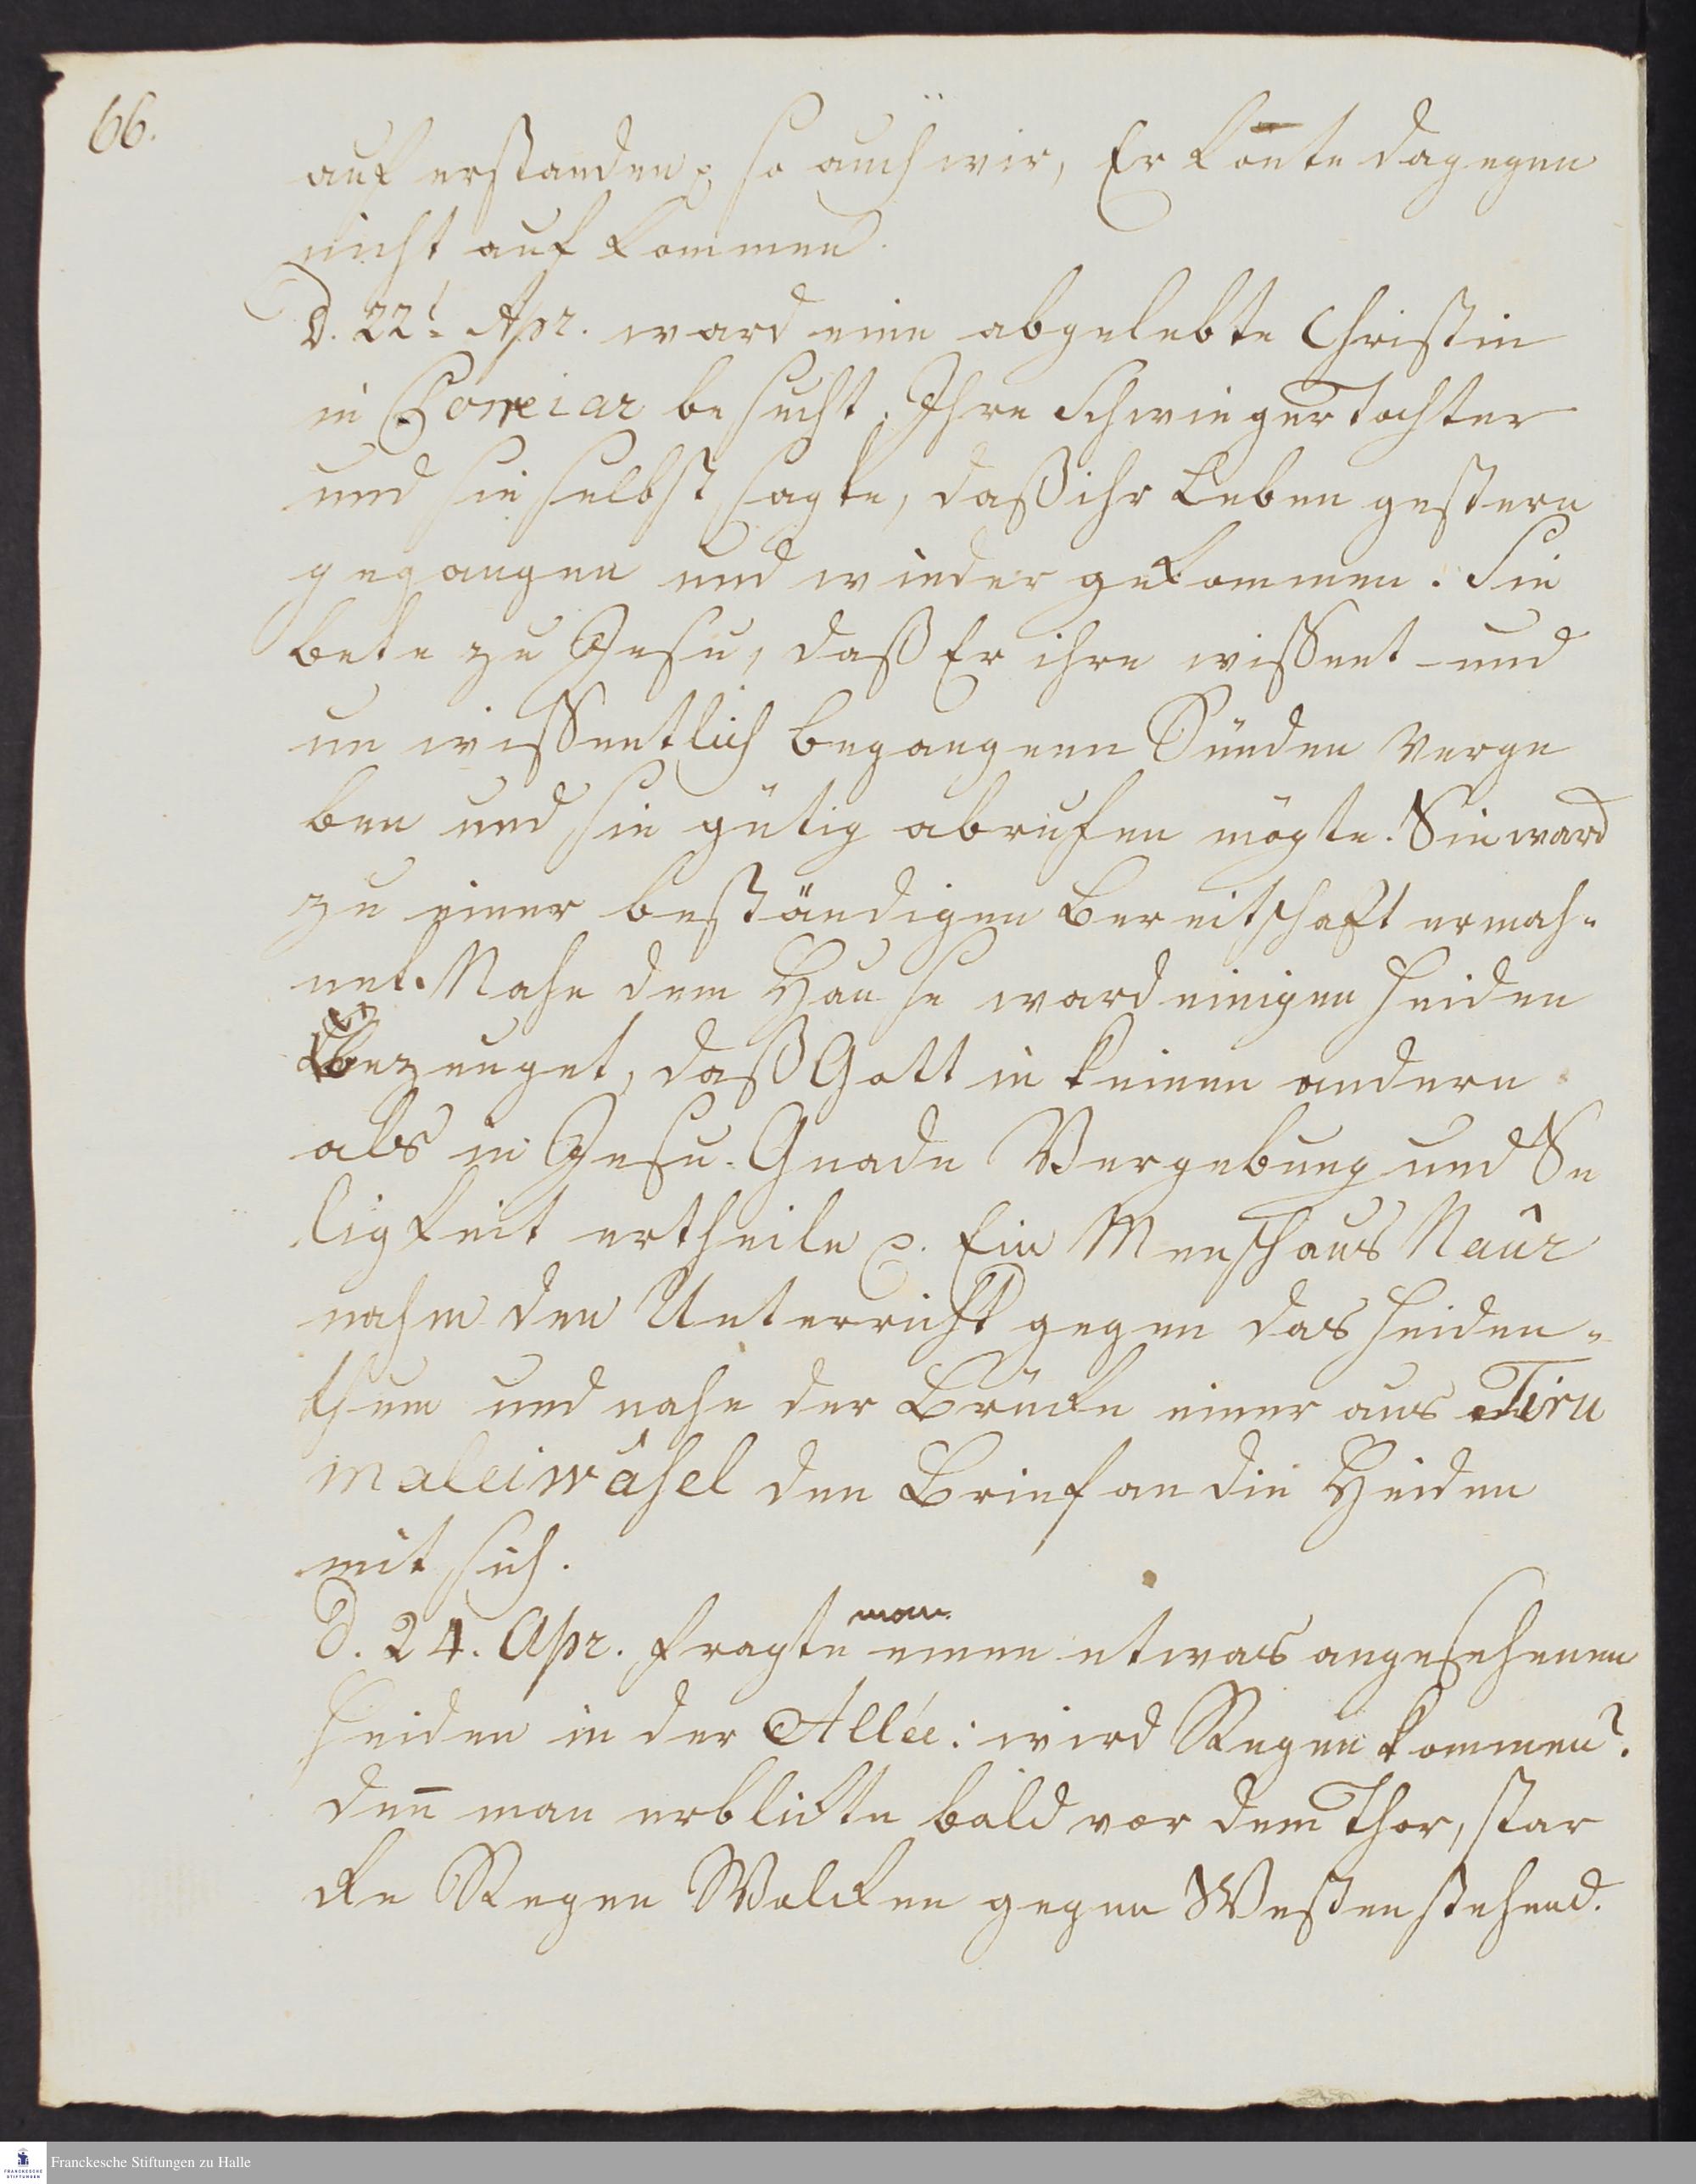 66.
auf erstanden ꝛc so auch wir, Er kon̄te dagegen
nicht auf kommen.
D. 22t Apr. ward eine abgelebte Christin
in Poreiar besucht. Ihre Schwieger Tochter
und sie selbst sagte, daß ihr Leben gestern
gegangen und wieder gekommen. Sie
bete zu Jesu, daß Er ihre wissent- und
un wissentlich begangnen Sünden verge
ben und sie gütig abrufen mögte. Sie ward
zu einer beständigen Bereitschaft ermah-
net. Nahe dem Hause ward einigen Heiden
bezeuget, daß Gott in keinen andern
als in Jesu Gnade Vergebung und Se
ligkeit ertheile ꝛc. Ein Mensch aus Naûr
nahm den Unterricht gegen das Heiden-
thum und nahe der Brücke einer aus Tiru
maleiwâsel den Brief an die Heiden
mit sich.
D. 24. Apr. fragte man einen etwas angesehenen
Heiden in der Allée: wird Regen kommen?
den̄ man erblickte bald vor dem Thor, star
cke Regen Wolcken gegen Westen stehend.
Franckesche Stiftungen zu Halle